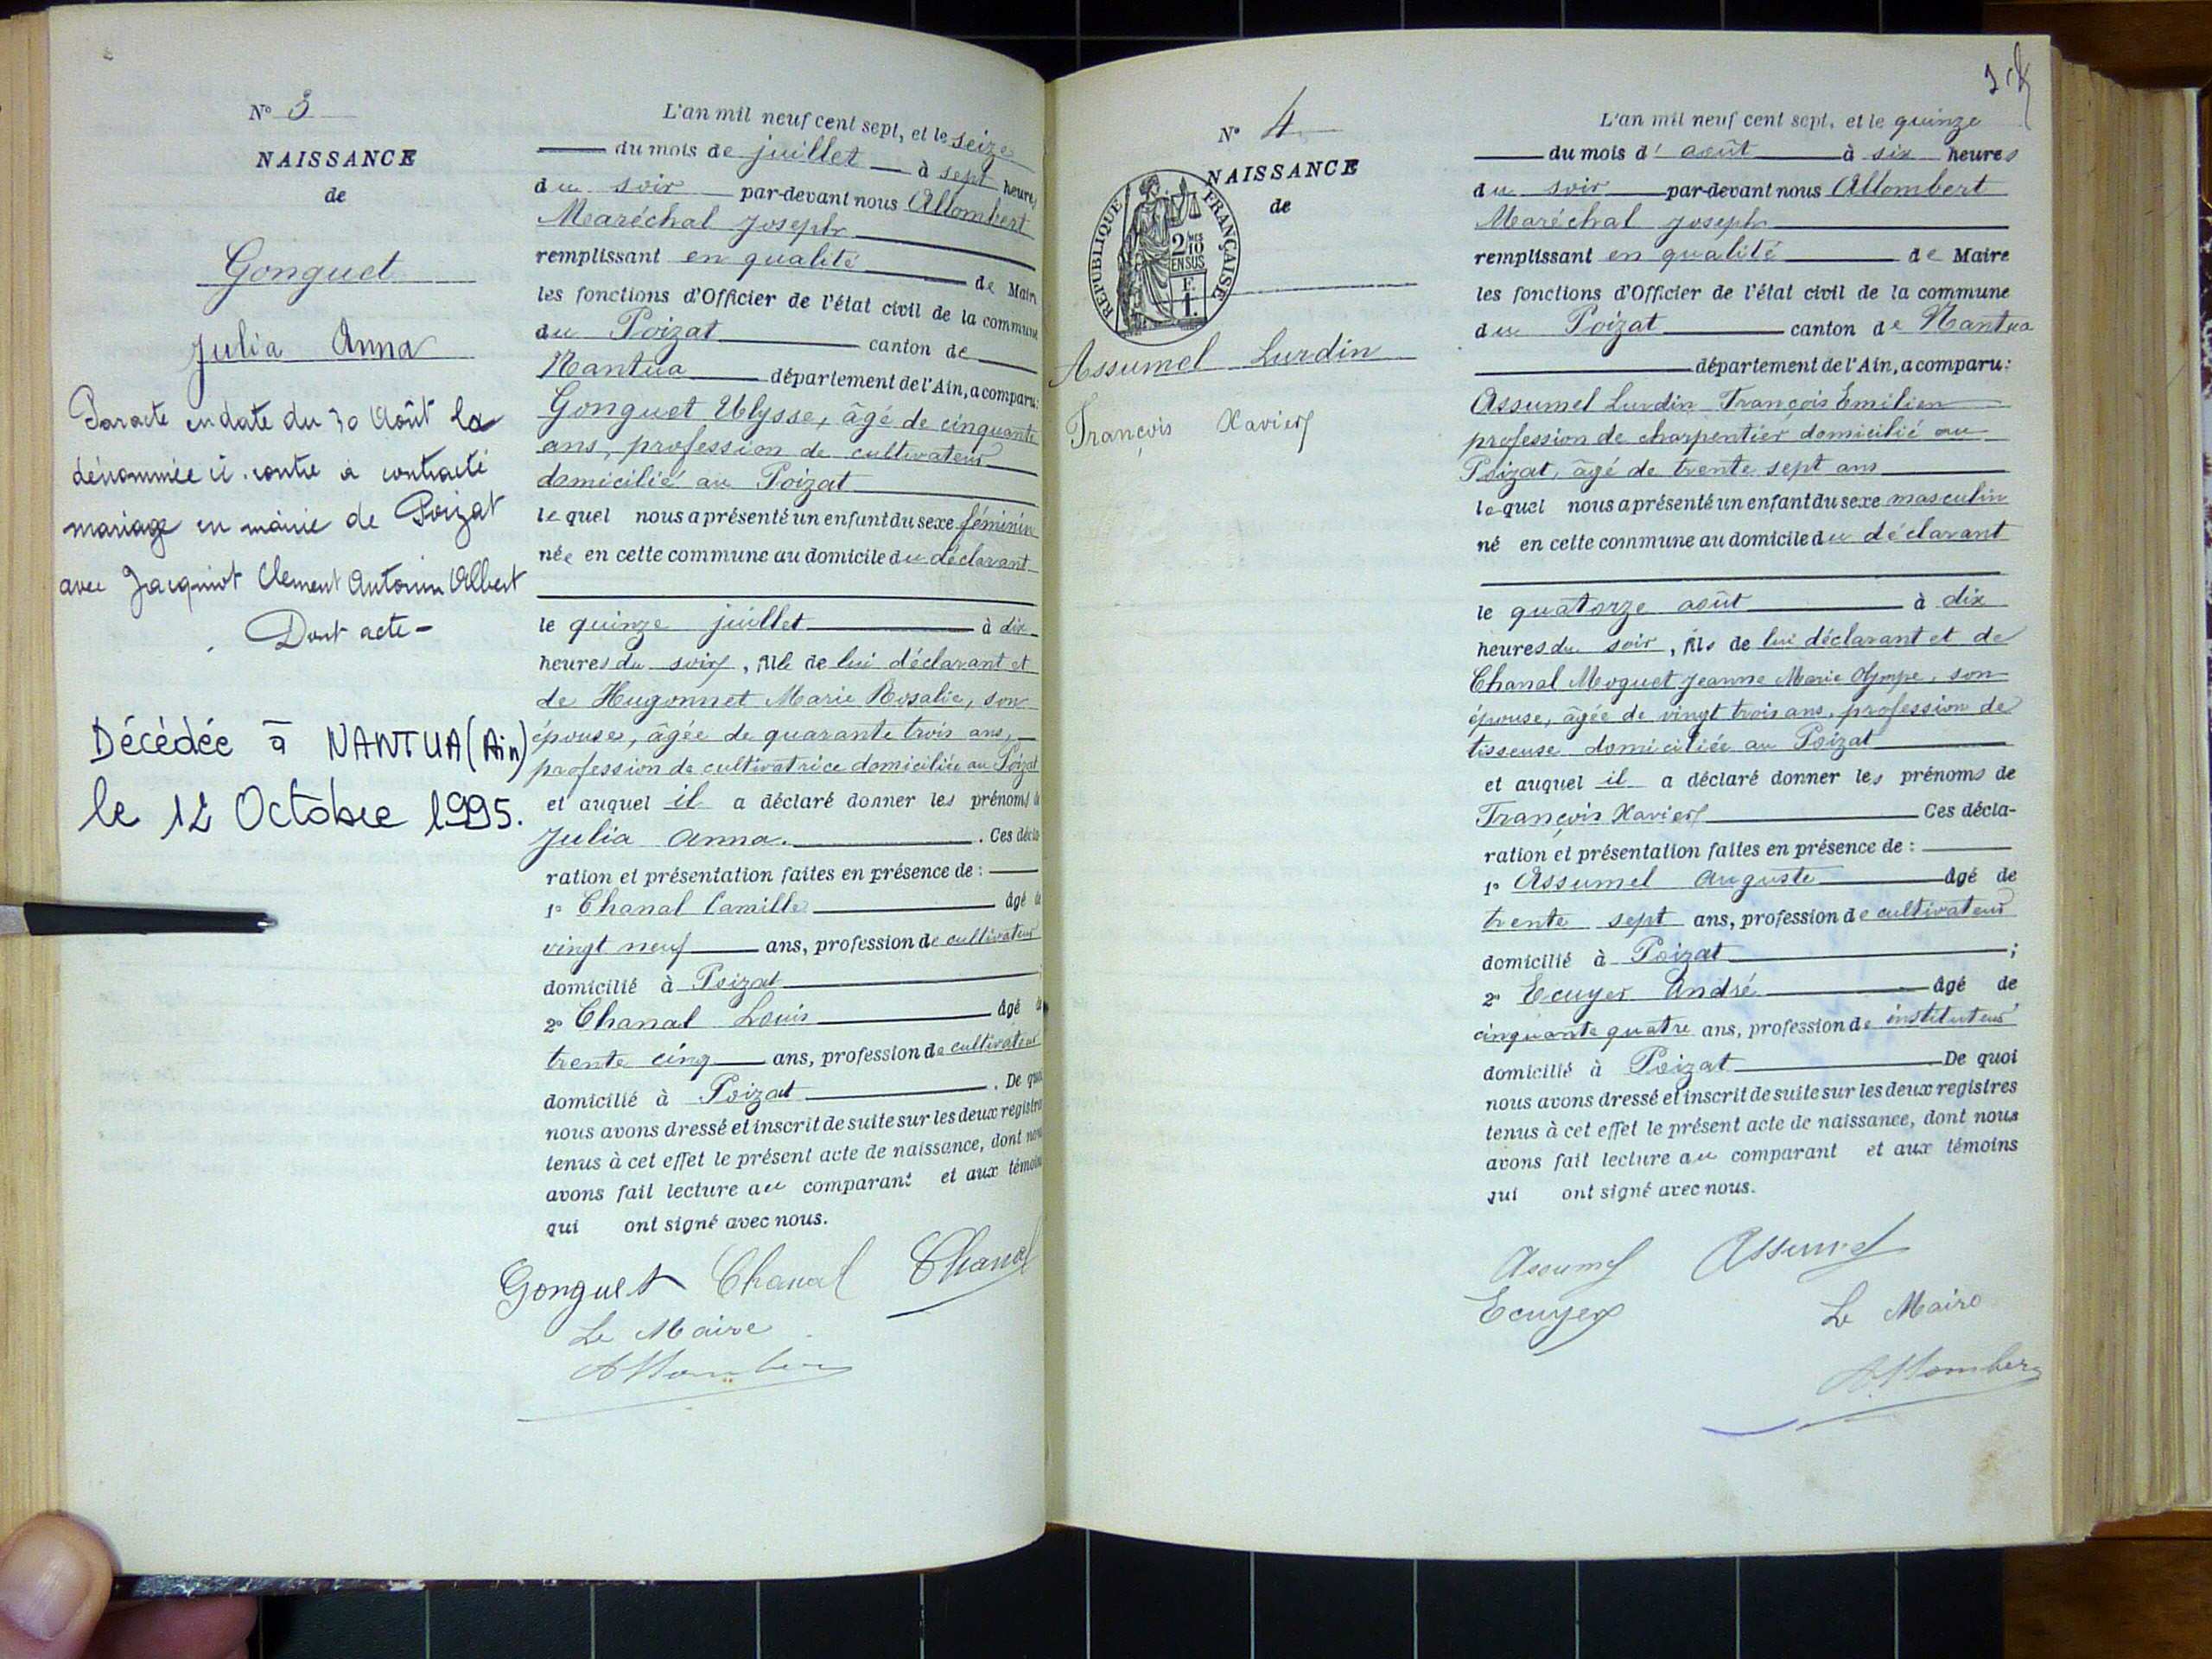 N° 3
NAISSANCE
de
Gonguet
Julia Anna
Par acte en date du 30 Août la
dénommée ci-contre a contracté
mariage en mairie de Poizat
avec Jacquiot Clement Antonin Albert
Dont acte -
Décédée à NANTUA (Ain)
le 12 Octobre 1995.
L'an mil neuf cent sept, et le seize
du mois de juillet à sept heures
du soir par-devant nous Allombert
Maréchal Joseph
remplissant en qualité de Maire
les fonctions d'Officier de l'état civil de la commune
du Poizat canton de
Nantua département de l'Ain, a comparu:
Gonguet Ulysse, âgé de cinquante
ans, profession de cultivateur
domicilié au Poizat
lequel nous a présenté un enfant du sexe féminin
née en cette commune au domicile du déclarant
le quinze juillet à dix
heures du soir, fille de lui déclarant et
de Hugonnet Marie Rosalie, son
épouse, âgée de quarante trois ans,
profession de cultivatrice domiciliée au Poizat
et auquel il a déclaré donner les prénoms de
Julia Anna. Ces décla-
ration et présentation faites en présence de :
1° Chanal Camille âgé de
vingt neuf ans, profession de cultivateur
domicilié à Poizat
2° Chanal Louis âgé de
trente cinq ans, profession de cultivateur
domicilié à Poizat. De quoi
nous avons dressé et inscrit de suite sur les deux registres
tenus à cet effet le présent acte de naissance, dont nous
avons fait lecture au comparant et aux témoins
qui ont signé avec nous.
Gonguet Chanal Chanal
Le Maire
Allombert
N° 4
NAISSANCE
de
RÉPUBLIQUE FRANÇAISE
2/10 MES
EN SUS
F.
1.
Assumel Lurdin
François Xavier
L'an mil neuf cent sept, et le quinze
du mois d'août à six heures
du soir par-devant nous Allombert
Maréchal Joseph
remplissant en qualité de Maire
les fonctions d'Officier de l'état civil de la commune
du Poizat canton de Nantua
département de l'Ain, a comparu:
Assumel Lurdin François Emilien
profession de charpentier domicilié au
Poizat, âgé de trente sept ans
lequel nous a présenté un enfant du sexe masculin
né en cette commune au domicile du déclarant
le quatorze août à dix
heures du soir, fils de lui déclarant et de
Chanal Moguet Jeanne Marie Olympe, son
épouse, âgée de vingt trois ans, profession de
tisseuse domiciliée au Poizat
et auquel il a déclaré donner les prénoms de
François Xavier Ces décla-
ration et présentation faites en présence de :
1° Assumel Auguste âgé de
trente sept ans, profession de cultivateur
domicilié à Poizat ;
2° Ecuyer André âgé de
cinquante quatre ans, profession de instituteur
domicilié à Poizat De quoi
nous avons dressé et inscrit de suite sur les deux registres
tenus à cet effet le présent acte de naissance, dont nous
avons fait lecture au comparant et aux témoins
qui ont signé avec nous.
Assumel Assumel
Ecuyer Le Maire
Allombert